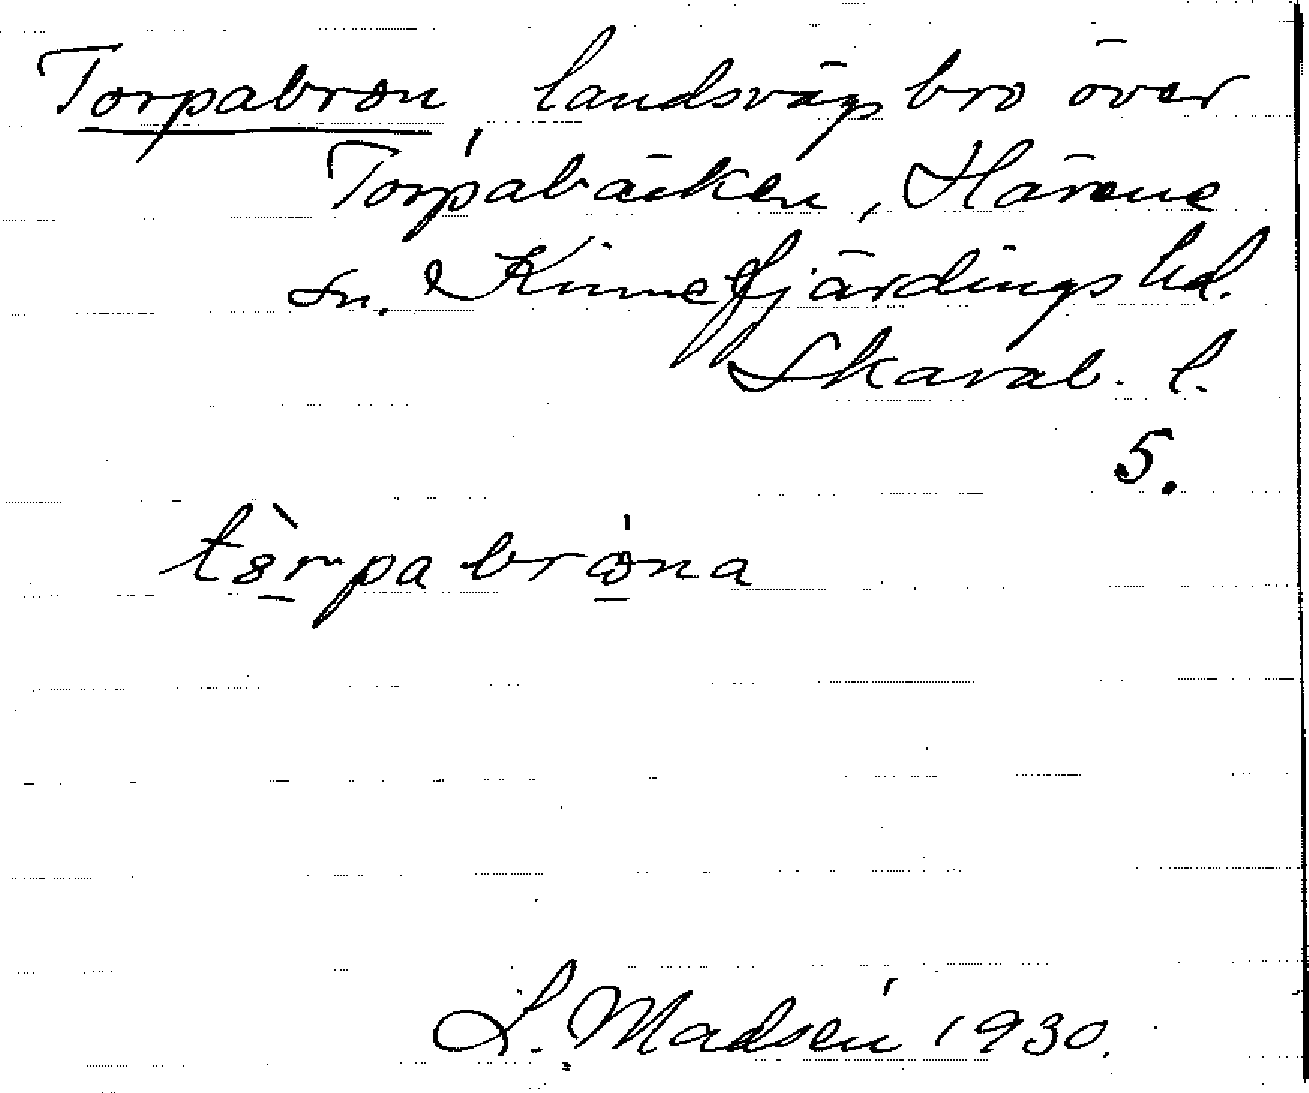 Torpabron, landsvägsbro över
Torpabäcken, Härene
sn. Kinnefjärdings hd.
Skarab. l.
5.
L. Madsén 1930.